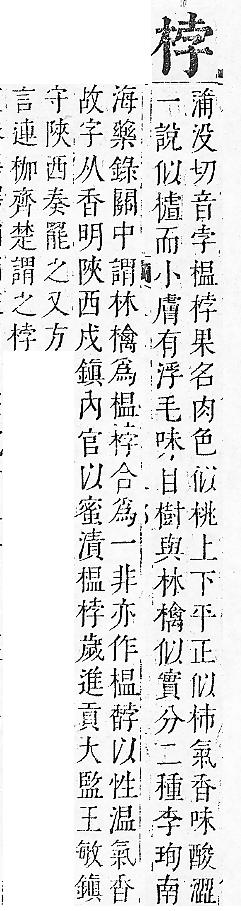 桲
蒲没切音孛榲桲果名肉色似桃上下平正似柹氣香味酸澀
一說似樝而小膚有浮毛味甘樹與林檎似實分二種李珣南
海藥錄關中謂林檎爲榲桲合爲一非亦作榲䤃以性温氣香
故字从香明陜西戍鎮內官以蜜漬榲桲歲進貢大監王敏鎮
守陜西奏罷之又方
言連枷齊楚謂之桲